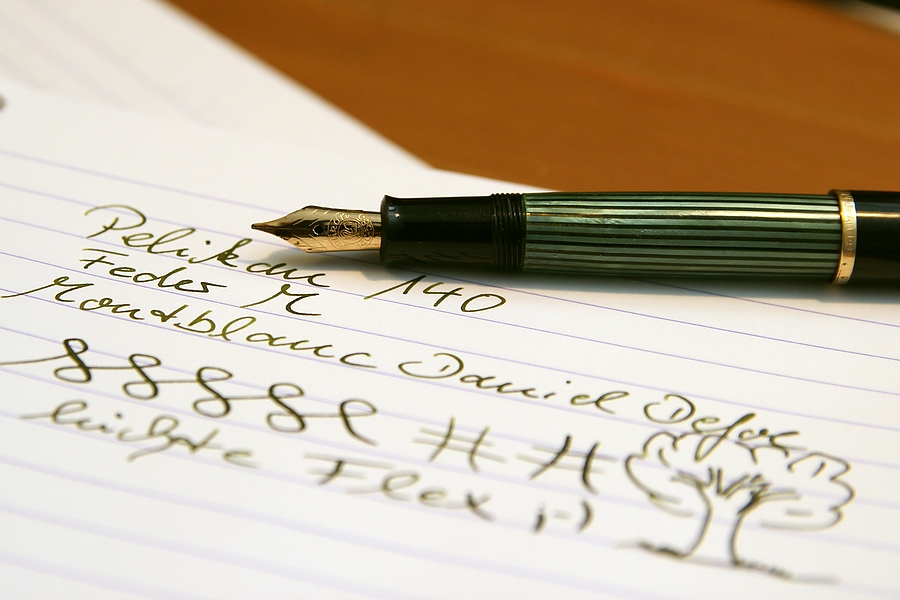 Pelikan 140
Feder M
Montblanc Daniel Defoe
leichte Flex ;-)